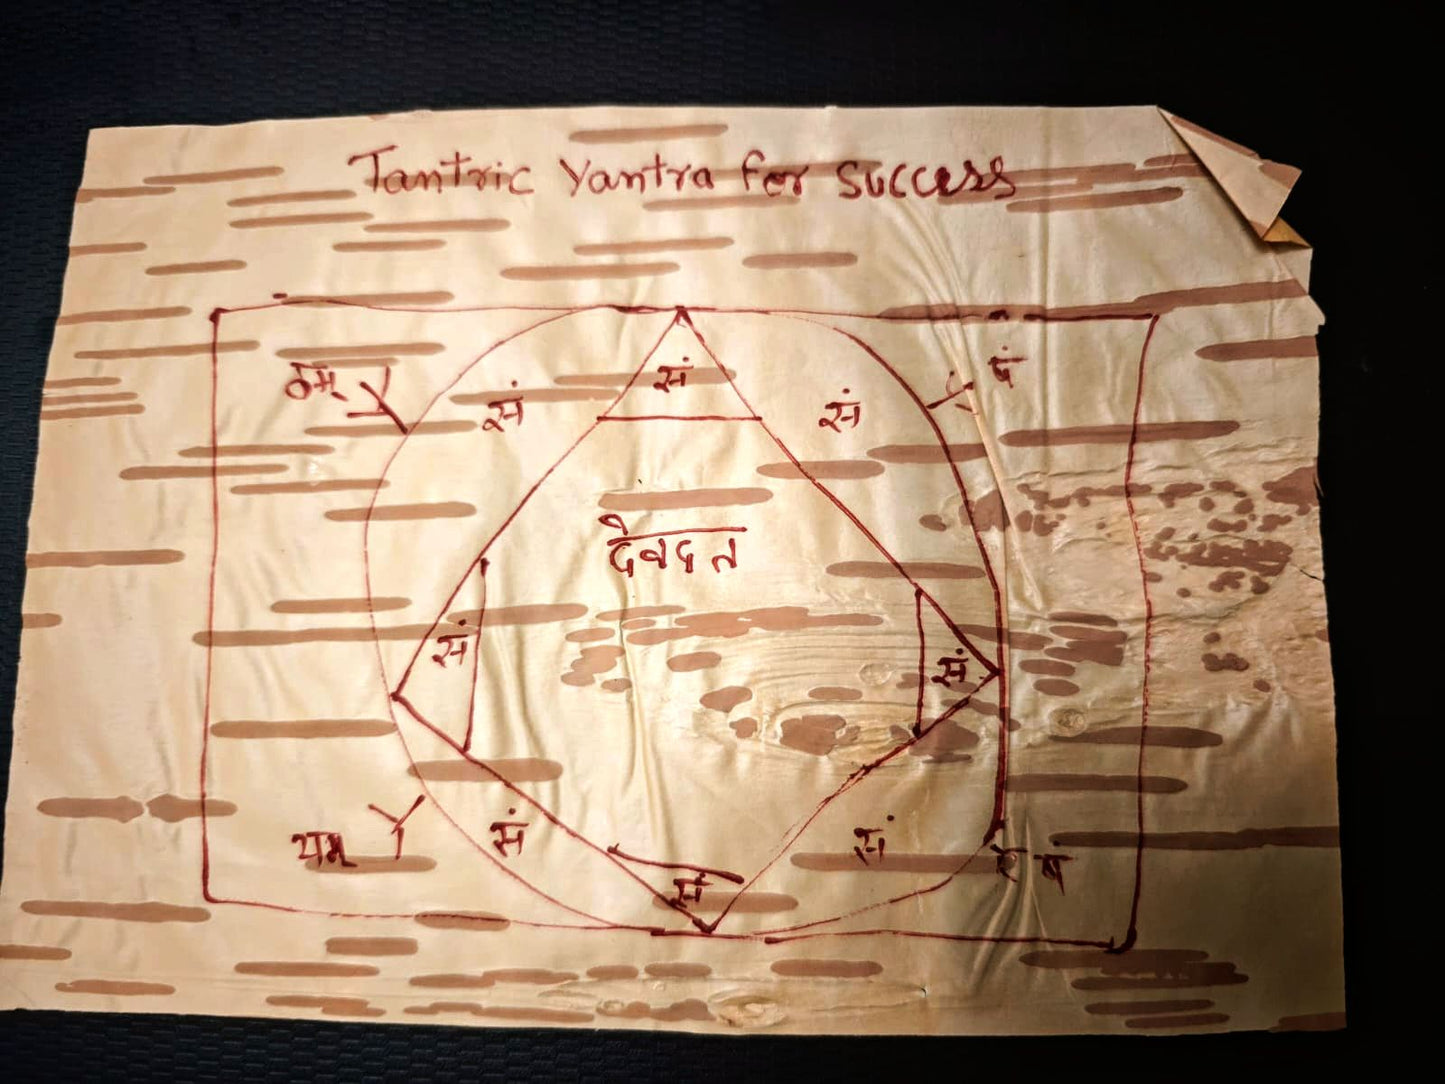 Tantric Yantra for success
ठम्
सं
सं
सं
पं
देवदत्त
सं
सं
यम्
सं
सं
सं
बं